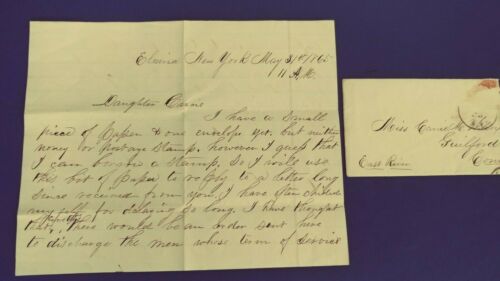 Elmira New York May 31st/65
11 A.M.
Daughter Carrie
I have a small
piece of Paper & one envelope yet, but neither
money or Postage Stamp, however I guess that
I can borrow a Stamp, So I will use
this bit of paper to reply to a letter long
since received from you, I have often chided
myself for delaying so long. I have thought
that, there would be an order sent here
to discharge the men whose term of service
Miss Carrie
Guilford
East River